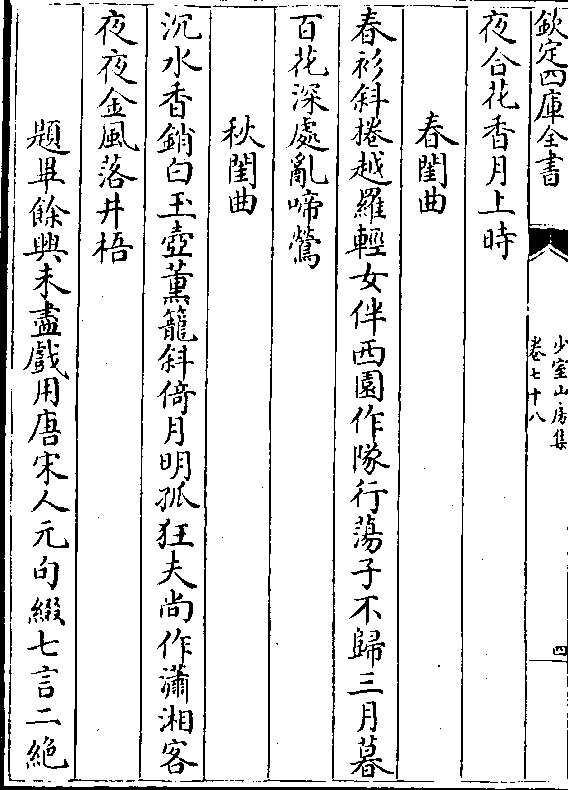 欽定四庫全書
少室山房集
卷七十八
四
夜合花香月上時
春閨曲
春衫斜捲越羅輕女伴西園作隊行蕩子不歸三月暮
百花深處亂啼鶯
秋閨曲
沉水香銷白玉壺薰籠斜倚月明孤狂夫尚作瀟湘客
夜夜金風落井梧
題畢餘興未盡戲用唐宋人元句綴七言二絶